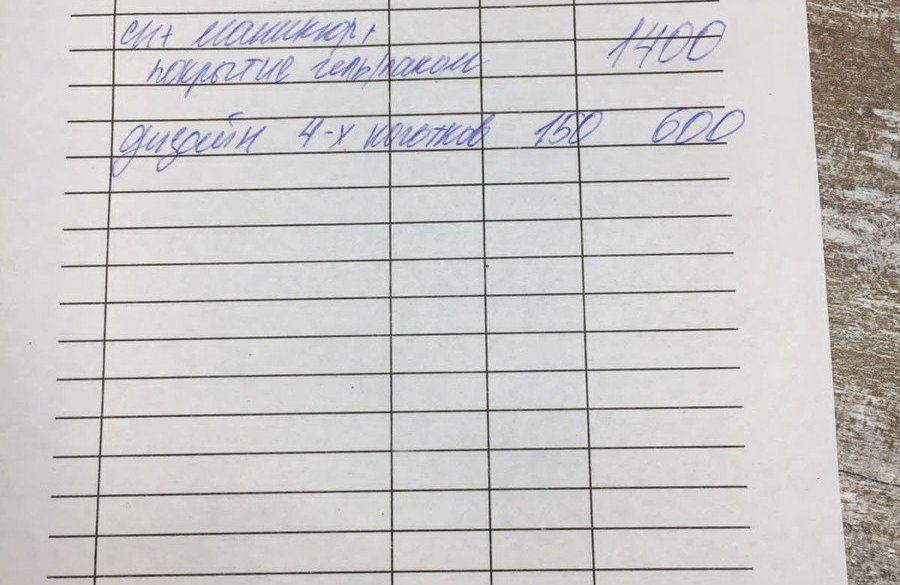 сн+ маникюр+ 1400
покрытие гель/лаком
дизайн 4-х ноготков 150 600